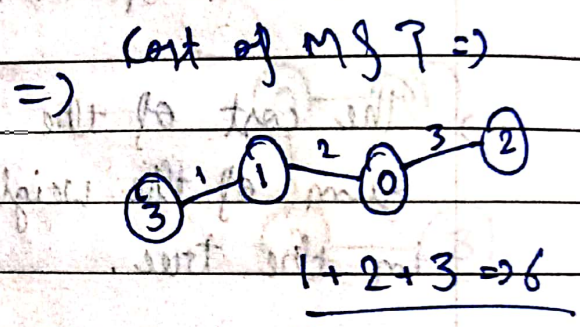 Cost of MST =>
=>
3 1 1 2 0 3 2
1 + 2 + 3 => 6